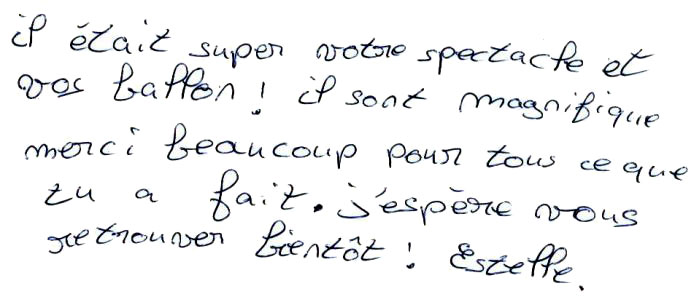 il était super votre spectacle et
vos ballon ! il sont magnifique
merci beaucoup pour tous ce que
tu a fait. j'espère vous
retrouver bientôt ! Estelle.